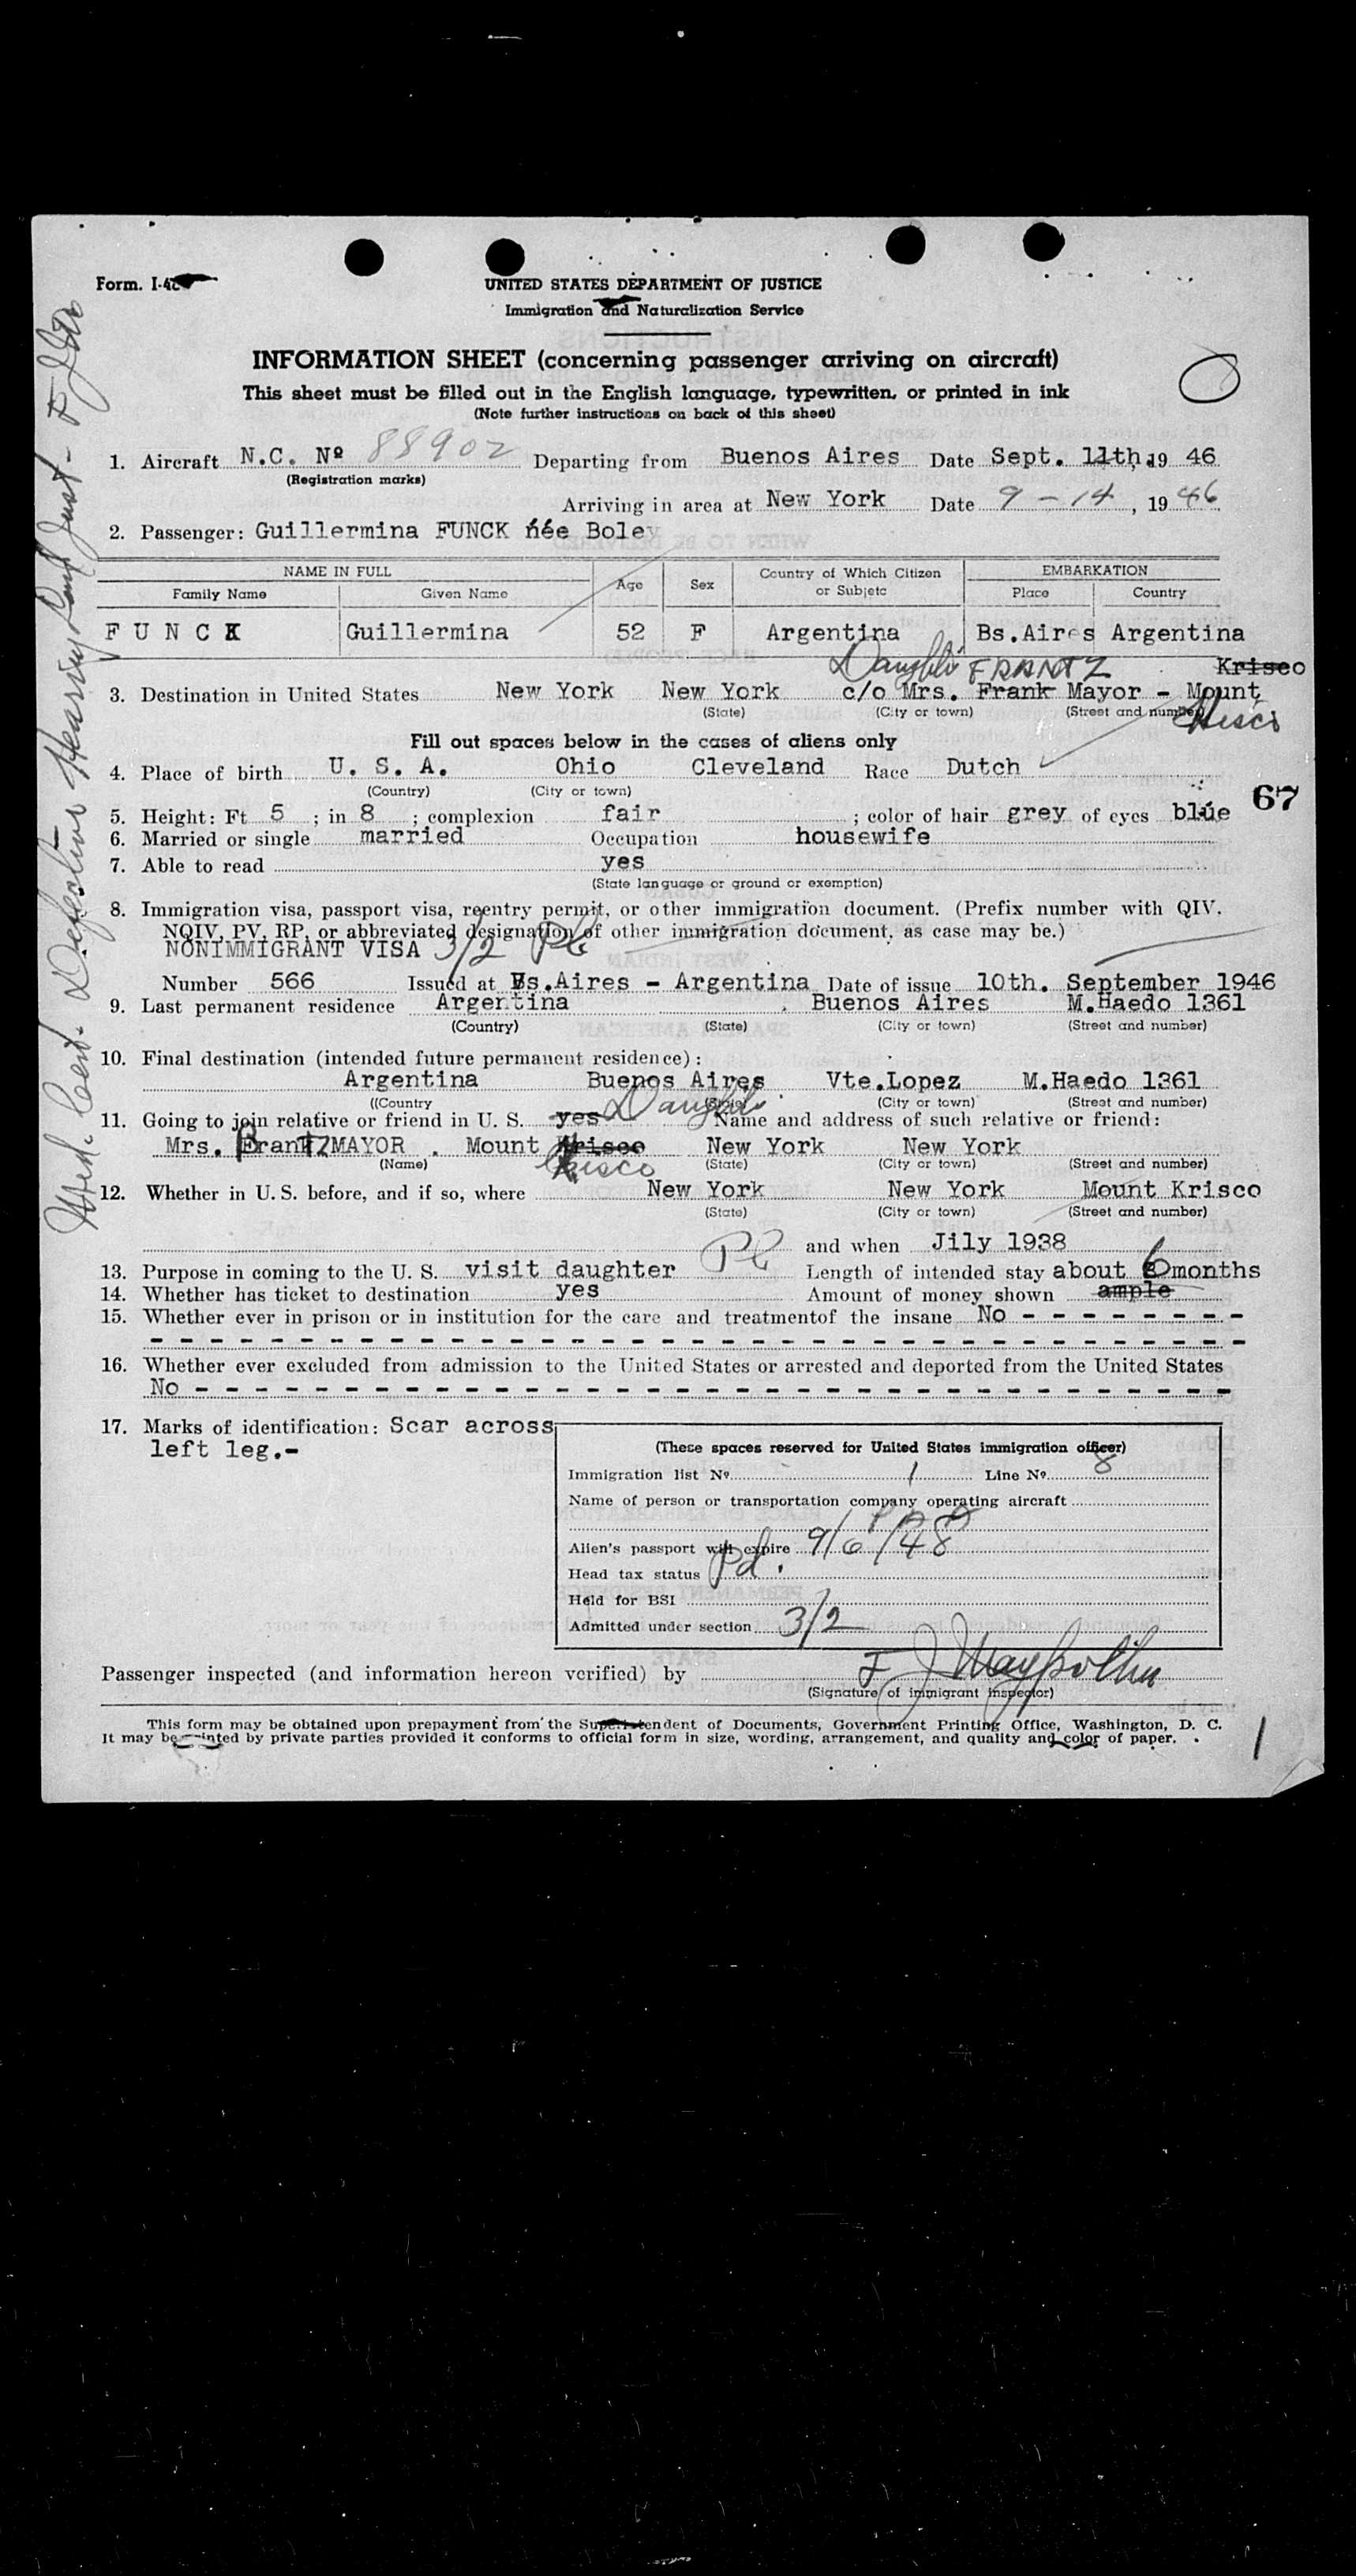 Form. I-4
UNITED STATES DEPARTMENT OF JUSTICE
Immigration and Naturalization Service
INFORMATION SHEET (concerning passenger arriving on aircraft)
This sheet must be filled out in the English language, typewritten, or printed in ink
(Note further instructions on back of this sheet)
1. Aircraft N.C. Nº 88902 Departing from Buenos Aires Date Sept. 11th, 19 46
(Registration marks)
Arriving in area at New York Date 9-14, 1946
2. Passenger: Guillermina FUNCK née Boley
NAME IN FULL Age Sex Country of Which Citizen or Subjetc EMBARKATION
Family Name Given Name Place Country
FUNCK Guillermina 52 F Argentina Bs.Aires Argentina
Daughter FRANTZ Krisco
3. Destination in United States New York New York c/o Mrs. Frank Mayor - Mount
(State) (City or town) (Street and number)
Kisco
Fill out spaces below in the cases of aliens only
4. Place of birth U. S. A. Ohio Cleveland Race Dutch
(Country) (City or town)
67
5. Height: Ft 5 ; in 8 ; complexion fair ; color of hair grey of eyes blue
6. Married or single married Occupation housewife
7. Able to read yes
(State language or ground or exemption)
8. Immigration visa, passport visa, reentry permit, or other immigration document. (Prefix number with QIV.
NQIV, PV, RP, or abbreviated designation of other immigration document, as case may be.)
NONIMMIGRANT VISA 3/2 Pl
Number 566 Issued at Bs.Aires - Argentina Date of issue 10th. September 1946
9. Last permanent residence Argentina Buenos Aires M.Haedo 1361
(Country) (State) (City or town) (Street and number)
10. Final destination (intended future permanent residence):
Argentina Buenos Aires Vte.Lopez M.Haedo 1361
((Country (State) (City or town) (Street and number)
11. Going to join relative or friend in U. S. yes Daughter Name and address of such relative or friend:
Mrs. FrantZ MAYOR . Mount Krisco New York New York
(Name) Kisco (State) (City or town) (Street and number)
12. Whether in U. S. before, and if so, where New York New York Mount Krisco
(State) (City or town) (Street and number)
and when Jily 1938
13. Purpose in coming to the U. S. visit daughter Pl Length of intended stay about 6 months
14. Whether has ticket to destination yes Amount of money shown ample
15. Whether ever in prison or in institution for the care and treatmentof the insane No - - - - - - - -
16. Whether ever excluded from admission to the United States or arrested and deported from the United States
No - - - - - - - -
17. Marks of identification: Scar across
left leg.-
(These spaces reserved for United States immigration officer)
Immigration list Nº 1 Line Nº 8
Name of person or transportation company operating aircraft
P A A
Alien's passport will expire 9/6/48
Head tax status Pd.
Held for BSI
Admitted under section 3/2
Passenger inspected (and information hereon verified) by
(Signature of immigrant inspector)
This form may be obtained upon prepayment from the Superintendent of Documents, Government Printing Office, Washington, D. C.
It may be printed by private parties provided it conforms to official form in size, wording, arrangement, and quality and color of paper.
1
Med. Cert. Defective Hearing